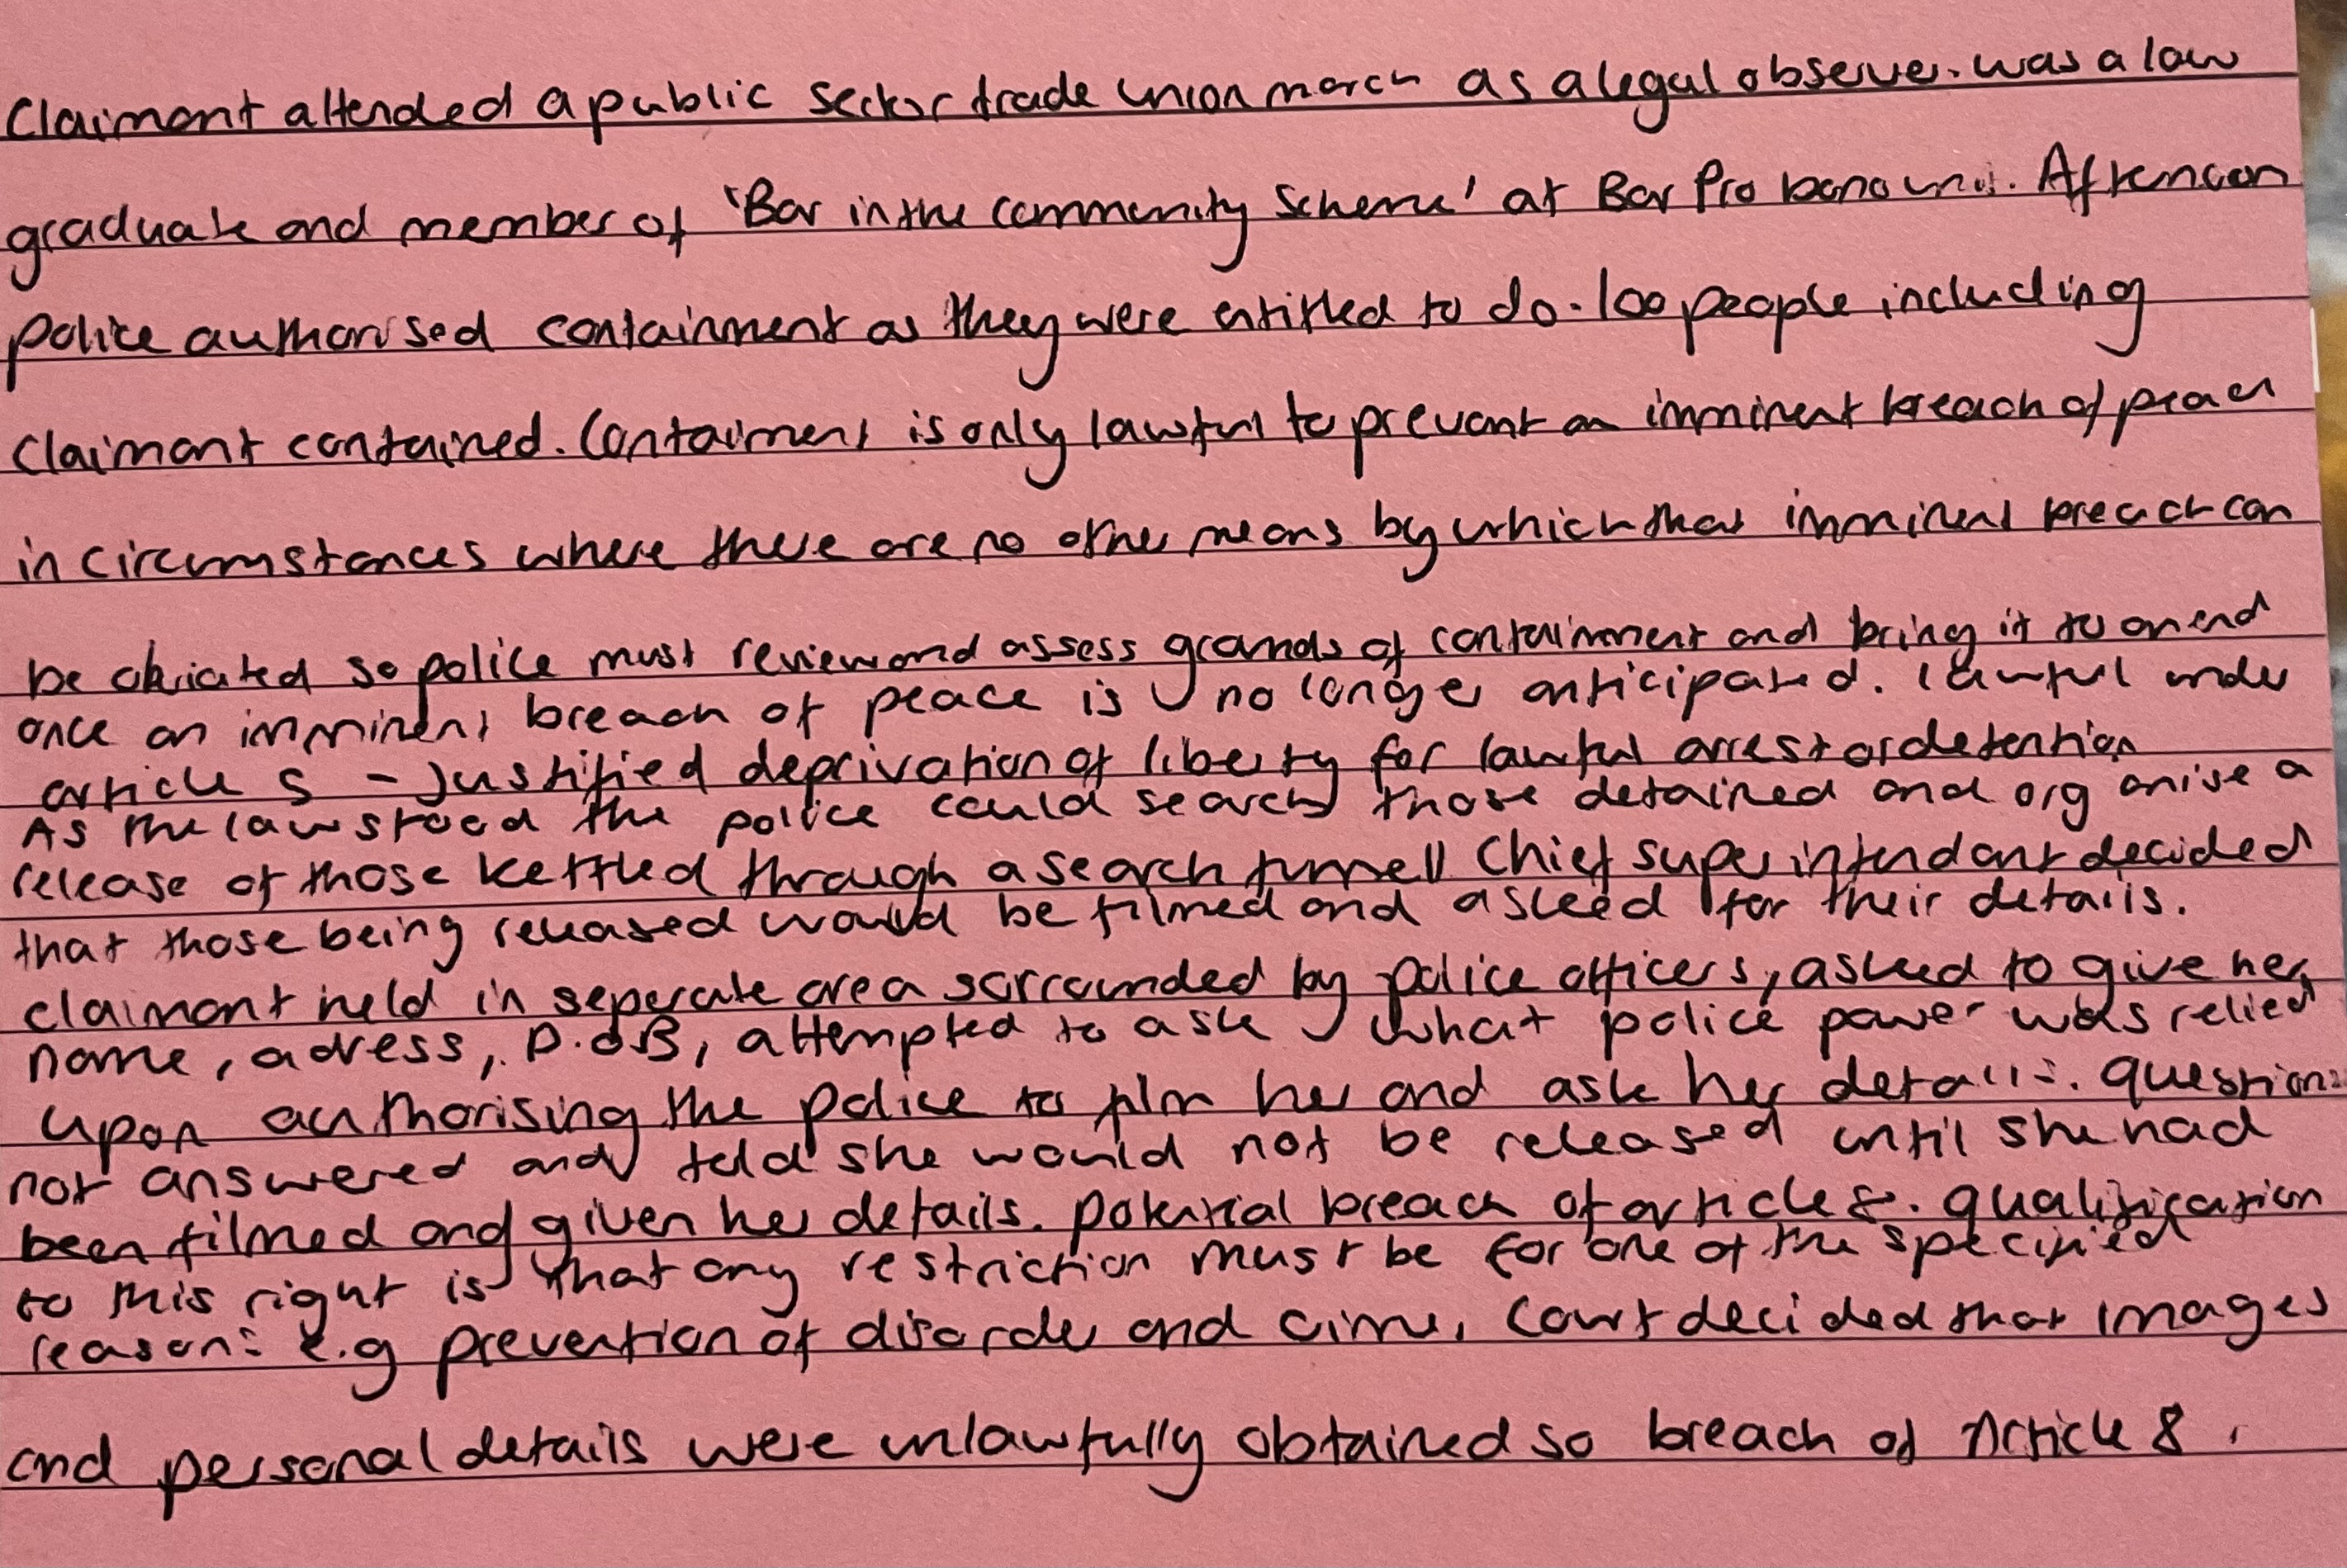 Claimant attended a public sector trade union march as a legal observer. was a law
graduate and member of 'Bar in the community Scheme' at Bar Pro bono unit. Afternoon
police authorised containment as they were entitled to do. 100 people including
claimant contained. Containment is only lawful to prevent an imminent breach of peace
in circumstances where there are no other means by which that imminent breach can
be obviated so police must review and assess grounds of containment and bring it to an end
once an imminent breach of peace is no longer anticipated. lawful under
article 5 - justified deprivation of liberty for lawful arrest or detention
As the law stood the police could search those detained and organise a
release of those kettled through a search tunnell Chief superintendant decided
that those being released would be filmed and asked for their details.
claimant held in seperate area sorrounded by police officers, asked to give her
name, adress, D.O.B, attempted to ask what police power was relied
upon authorising the police to film her and ask her details. questions
not answered and told she would not be released until she had
been filmed and given her details. potential breach of article 8. qualification
to this right is that any restriction must be for one of the specified
reasons e.g prevention of disorder and crime. Court decided that images
and personal details were unlawfully obtained so breach of Article 8.